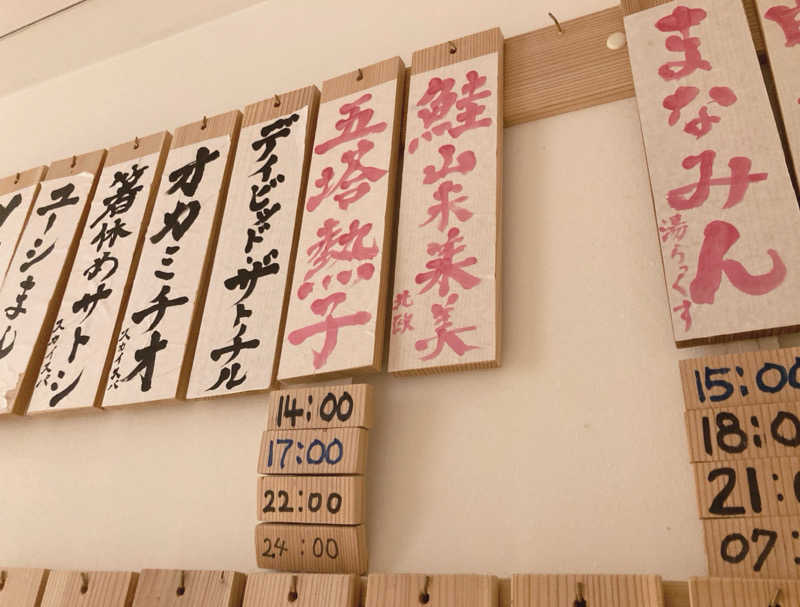 まなみん
湯らっくす
鮭山未菜美
北欧
五塔熱子
デイビッド・ザ・トナル
オカミチオ
箸休めサトシ
スカイスパ
ユーシまし
14:00
17:00
22:00
24:00
15:00
18:0
21:
07: